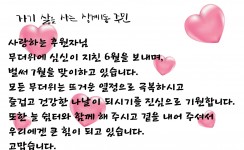 사랑하는 후원자님
무더위에 심신이 지친 6월을 보내며,
벌써 7월을 맞이하고 있습니다.
모든 무더위는 뜨거운 열정으로 극복하시고
즐겁고 건강한 나날이 되시기를 진심으로 기원합니다.
또한 늘 쉼터와 함께 해 주시고 곁을 내어 주셔서
우리에겐 큰 힘이 되고 있습니다.
고맙습니다.